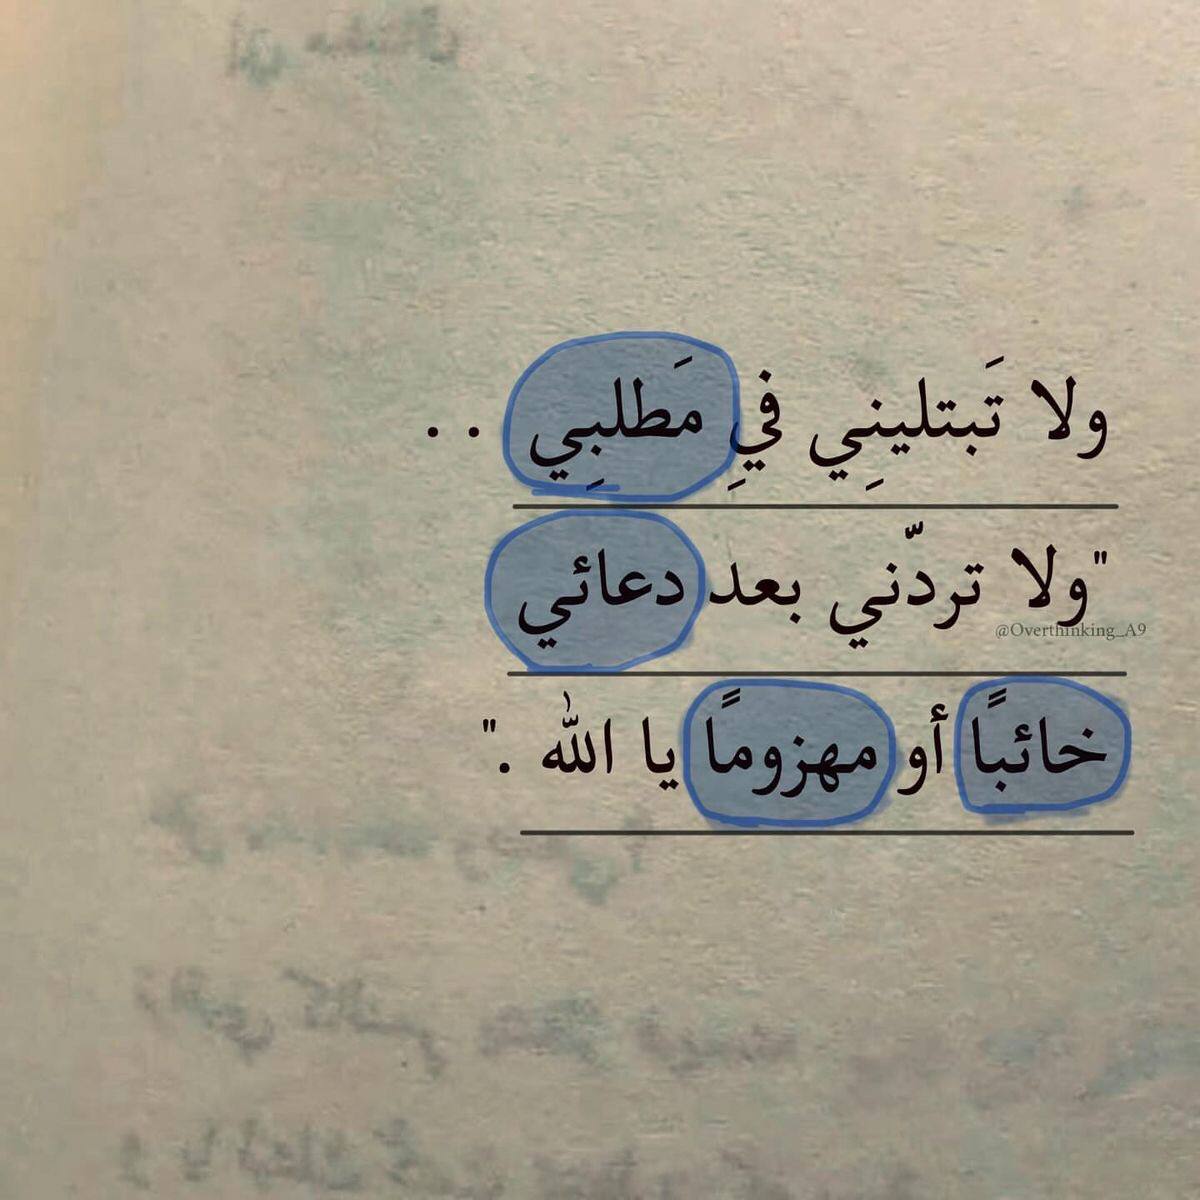 ولا تَبتلينِي فيِ مَطلبِي . .
"ولا تردّني بعد دعائي
@Overthinking_A9
خائبًا أو مهزومًا يا الله ."